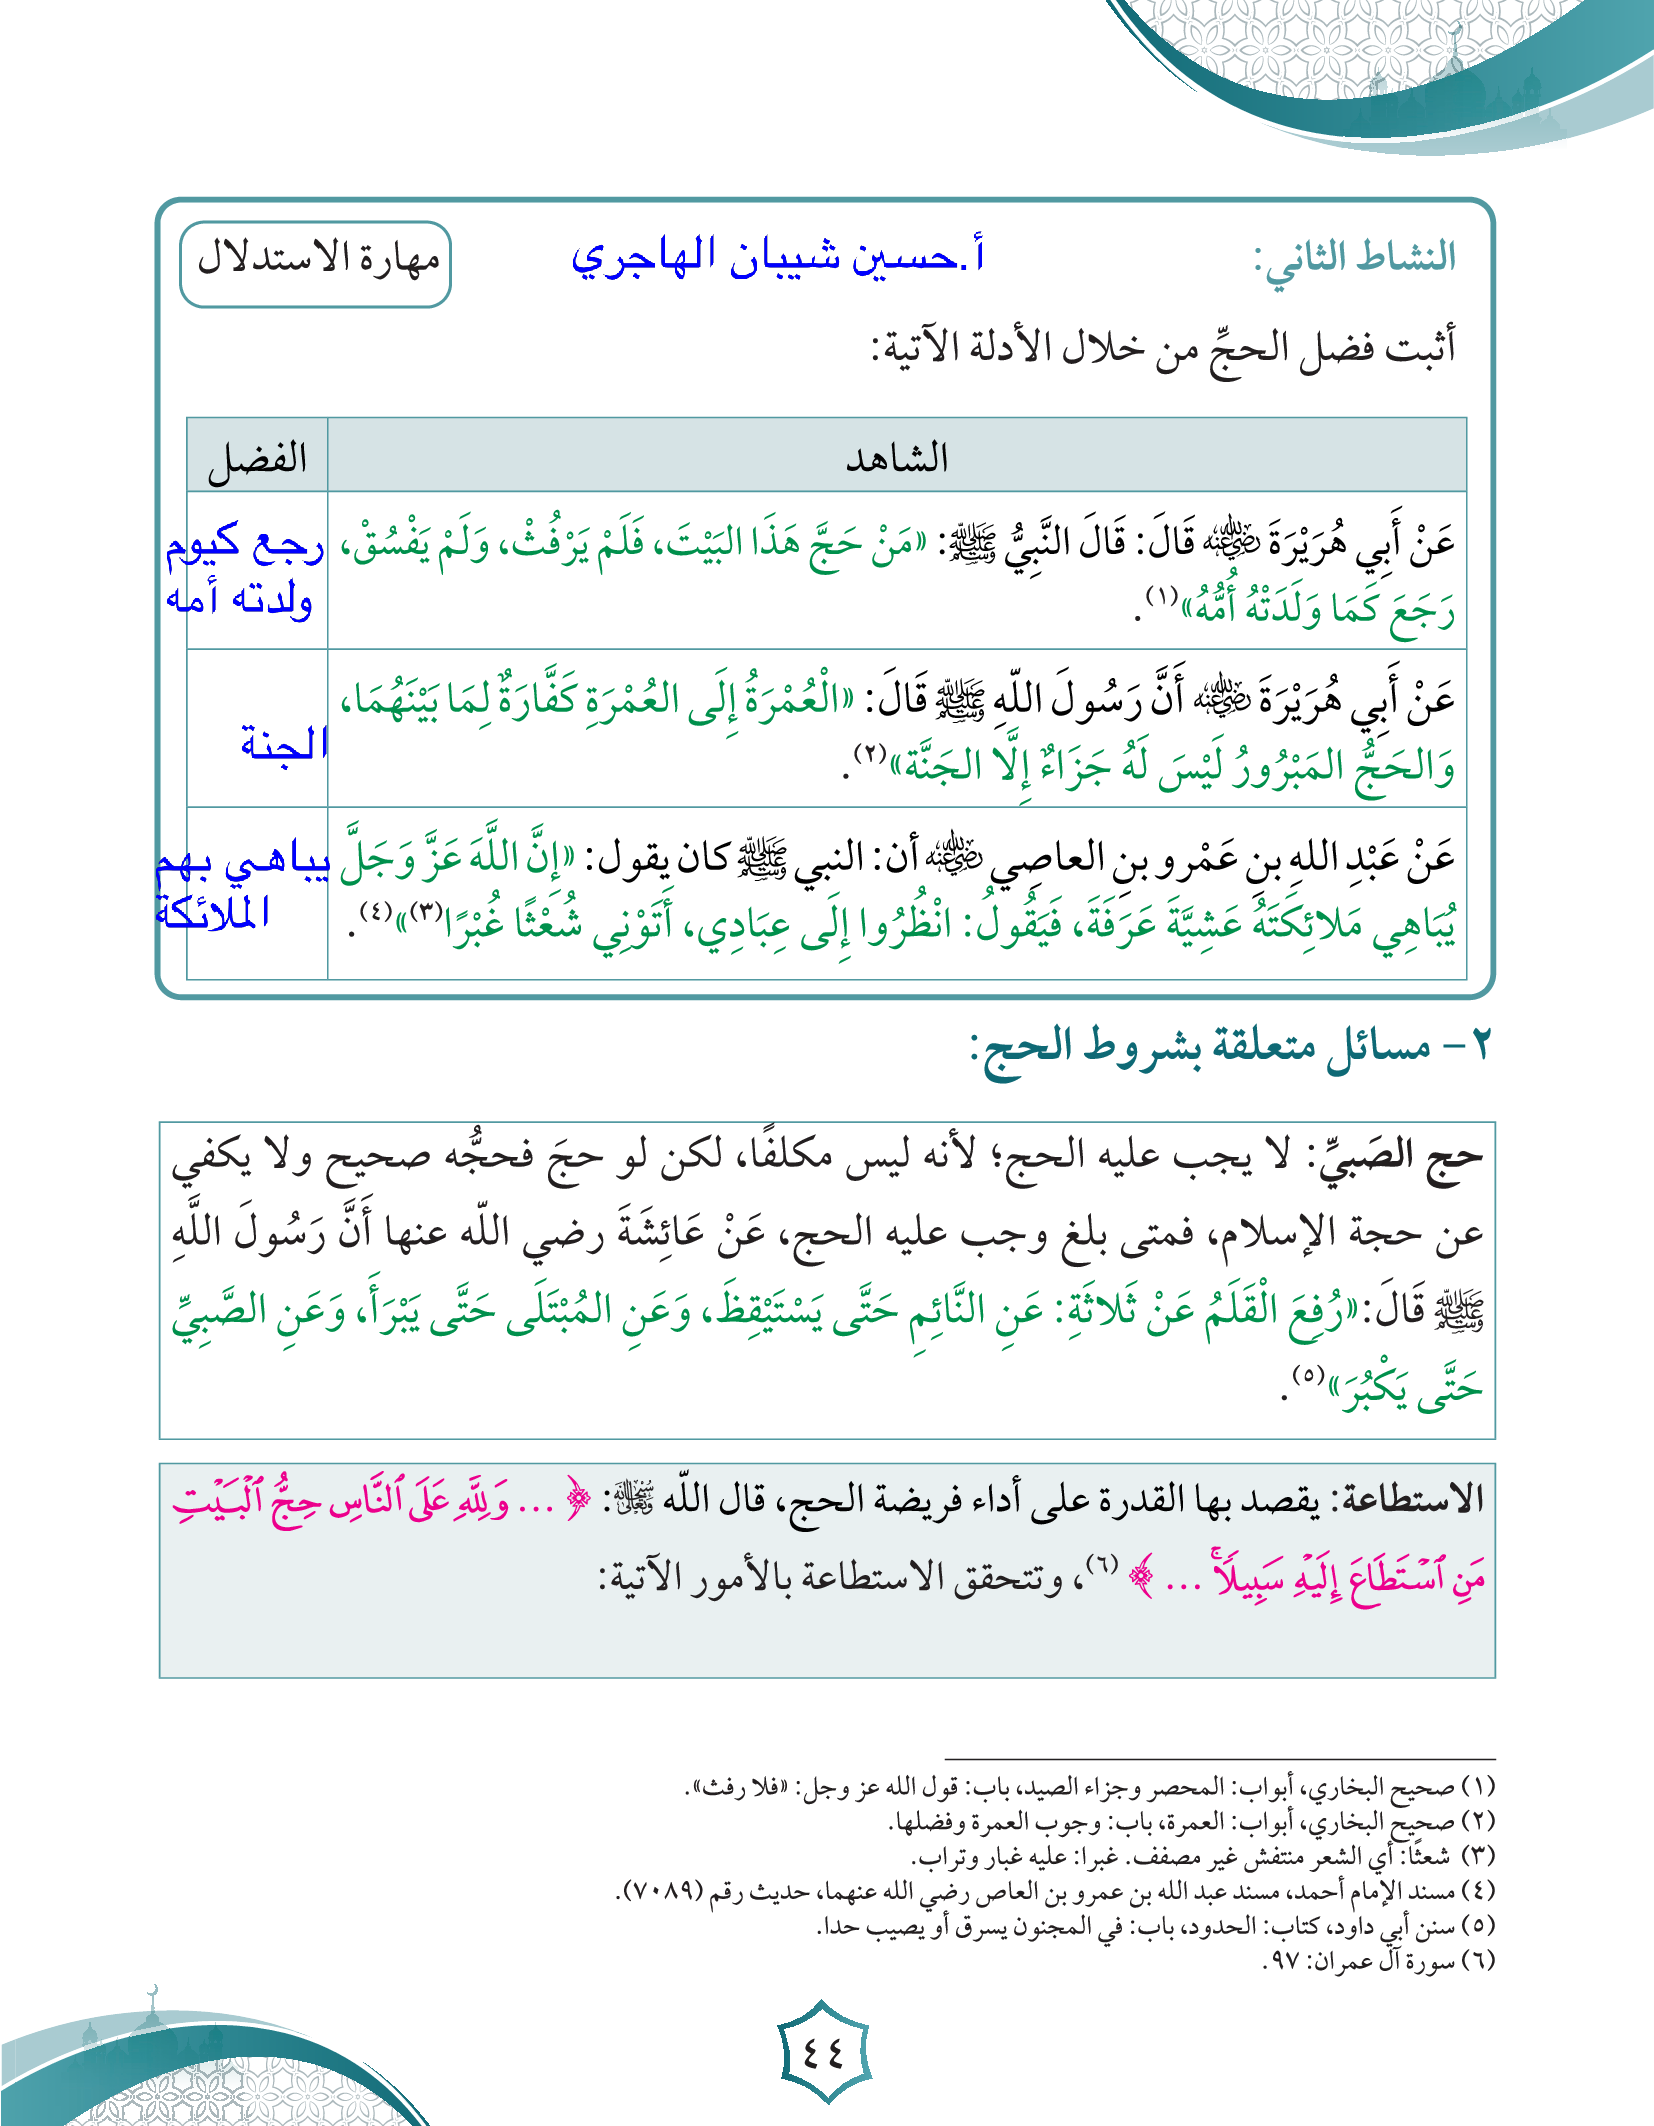 النشاط الثاني: أ.حسين شيبان الهاجري مهارة الاستدلال
أثبت فضل الحجِّ من خلال الأدلة الآتية:
الشاهد الفضل
عَنْ أَبِي هُرَيْرَةَ رضي الله عنه قَالَ: قَالَ النَّبِيُّ ﷺ: «مَنْ حَجَّ هَذَا البَيْتَ، فَلَمْ يَرْفُثْ، وَلَمْ يَفْسُقْ، رجع كيوم
رَجَعَ كَمَا وَلَدَتْهُ أُمُّهُ»(١). ولدته أمه
عَنْ أَبِي هُرَيْرَةَ رضي الله عنه أَنَّ رَسُولَ اللّهِ ﷺ قَالَ: «الْعُمْرَةُ إِلَى العُمْرَةِ كَفَّارَةٌ لِمَا بَيْنَهُمَا،
وَالحَجُّ المَبْرُورُ لَيْسَ لَهُ جَزَاءٌ إِلَّا الجَنَّة»(٢). الجنة
عَنْ عَبْدِ اللهِ بنِ عَمْرو بنِ العاصِي رضي الله عنه أن: النبي ﷺ كان يقول: «إِنَّ اللَّهَ عَزَّ وَجَلَّ يباهي بهم
يُبَاهِي مَلائِكَتَهُ عَشِيَّةَ عَرَفَةَ، فَيَقُولُ: انْظُرُوا إِلَى عِبَادِي، أَتَوْنِي شُعْثًا غُبْرًا(٣)»(٤). الملائكة
٢- مسائل متعلقة بشروط الحج:
حج الصَبيِّ: لا يجب عليه الحج؛ لأنه ليس مكلفًا، لكن لو حجَ فحجُّه صحيح ولا يكفي
عن حجة الإسلام، فمتى بلغ وجب عليه الحج، عَنْ عَائِشَةَ رضي اللّه عنها أَنَّ رَسُولَ اللَّهِ
ﷺ قَالَ: «رُفِعَ الْقَلَمُ عَنْ ثَلاثَةِ: عَنِ النَّائِمِ حَتَّى يَسْتَيْقِظَ، وَعَنِ المُبْتَلَى حَتَّى يَبْرَأَ، وَعَنِ الصَّبِيِّ
حَتَّى يَكْبُرَ»(٥).
الاستطاعة: يقصد بها القدرة على أداء فريضة الحج، قال اللّه سبحانه وتعالى: ﴿ ... وَلِلَّهِ عَلَى ٱلنَّاسِ حِجُّ ٱلْبَيْتِ
مَنِ ٱسْتَطَاعَ إِلَيْهِ سَبِيلًاۚ ... ﴾ (٦)، وتتحقق الاستطاعة بالأمور الآتية:
(١) صحيح البخاري، أبواب: المحصر وجزاء الصيد، باب: قول الله عز وجل: «فلا رفث».
(٢) صحيح البخاري، أبواب: العمرة، باب: وجوب العمرة وفضلها.
(٣) شعثًا: أي الشعر منتفش غير مصفف. غبرا: عليه غبار وتراب.
(٤) مسند الإمام أحمد، مسند عبد الله بن عمرو بن العاص رضي الله عنهما، حديث رقم (٧٠٨٩).
(٥) سنن أبي داود، كتاب: الحدود، باب: في المجنون يسرق أو يصيب حدا.
(٦) سورة آل عمران: ٩٧.
٤٤